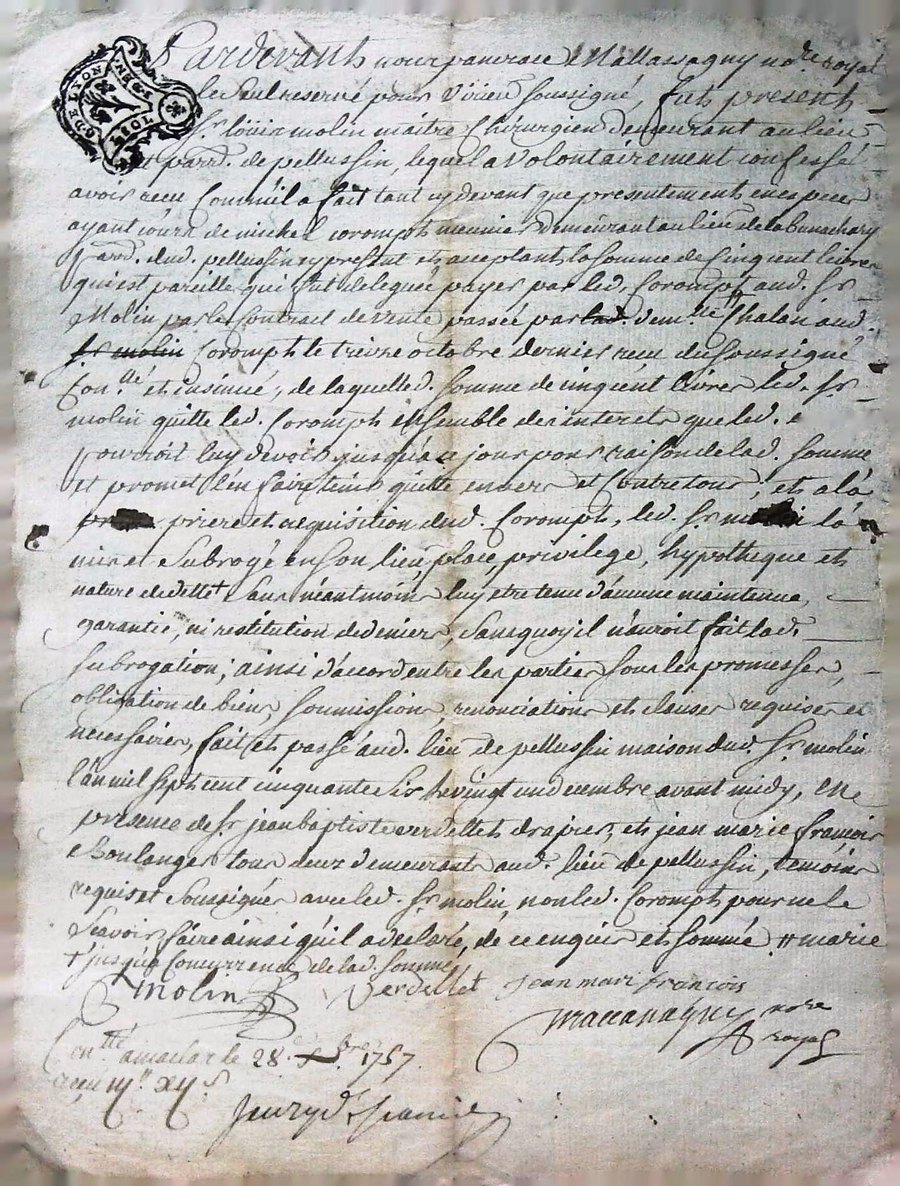 Pardevant nous pancrace Mallassagny no.re royal
le Seul reservé pour Soussigné, fut present
Sr. loüis molin maitre Chirurgien demeurant au lieu
et parr. de pellussin, lequel a Volontairement confessé
avoir receu Comm'il a fait tant cydevant que presentement en especes
ayant cours de michel coromph meunier demeurant au lieu de la
parr. dud. pellussin cy present et acceptant la somme de cinq cent livres
qui est pareille qui fut deleguée payer par led. Corompt aud. Sr.
Molin par le Contrait de vente passée par dem.lle Chalan aud.
Sr molin Coromph le treize octobre dernier receu du Soussigné
Con.llé et insinué, de laquelle d. somme de cinq cent livres led. Sr.
molin quitte led. Coromph ensemble des interets que led.
pourroit luy devoir jusqu'a ce jour pour raison de lad. Somme
et promet l'en faire tenir quitte envers et Contre tous, et a la
priere et requisition dud. Coromph, led. Sr molin la
mis et Subrogé en son lieu, place, privilege, hypotheque et
nature de dette + Sans néantmoins luy etre tenu d'aucune maintenue,
garantie, ni restitution de deniers, Sans quoy il n'auroit fait lad.
Subrogation; ainsi d'accord entre les parties Sous les promesses,
obligation de biens, Soumissions, renonciations et clauses requises et
necessaires, fait et passé aud. lieu de pellussin maison dud. Sr molin
l'an mil sept cent cinquante Six le vingt un decembre avant midy, en
présence de Sr jean baptiste verdellet drapier, et jean marie françois
Boulanger tous deux demeurants aud. lieu de pellussin, temoins
requis et Soussignés avec led. Sr. molin, non led. Coromph pour ne le
Scavoir faire ainsi qu'il a declaré, de ce enquis et sommé # marie
+ jusqu'a Concurrence de lad. somme
molin Verdellet Jean mari françois
nore
royal
Con.llé a maclas le 28.e Xbre 1757
receu